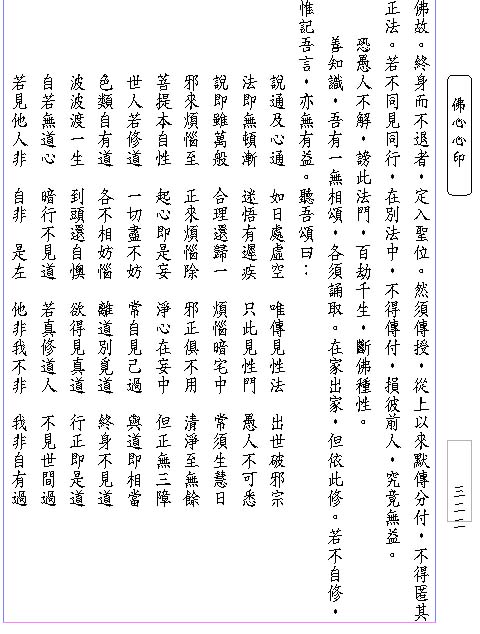 佛心心印
佛故。終身而不退者,定入聖位。然須傳授,從上以來默傳分付,不得匿其
正法。若不同見同行,在別法中,不得傳付,損彼前人,究竟無益。
恐愚人不解,謗此法門,百劫千生,斷佛種性。
善知識,吾有一無相頌,各須誦取。在家出家,但依此修。若不自修,
惟記吾言,亦無有益。聽吾頌曰:
說通及心通 如日處虛空 唯傳見性法 出世破邪宗
法即無頓漸 迷悟有遲疾 只此見性門 愚人不可悉
說即雖萬般 合理還歸一 煩惱暗宅中 常須生慧日
邪來煩惱至 正來煩惱除 邪正俱不用 清淨至無餘
菩提本自性 起心即是妄 淨心在妄中 但正無三障
世人若修道 一切盡不妨 常自見己過 與道即相當
色類自有道 各不相妨惱 離道別覓道 終身不見道
波波渡一生 到頭還自懊 欲得見真道 行正即是道
自若無道心 暗行不見道 若真修道人 不見世間過
若見他人非 自非 是左 他非我不非 我非自有過
三二二